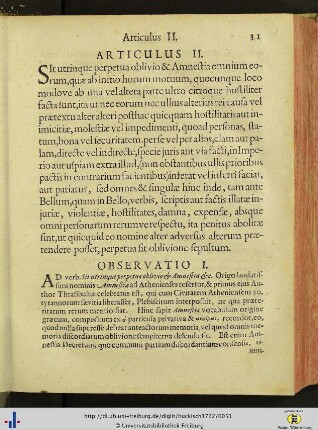 Articulus II. 31
ARTICULUS II.
SIt utrinque perpetua oblivio & Amnestia omnium eo-
rum, quæ ab initio horum motuum, quocunque loco
modove ab una vel altera parte ultro citroque hostiliter
facta sunt, ita ut nec eorum nec ullius alterius rei causa vel
prætextu alter alteri posthac quicquam hostilitatis aut in-
imicitiæ, molestiæ vel impedimenti, quoad personas, sta-
tum, bona vel securitatem, per se vel per alios, clam aut pa-
lam, directe vel indirecte, specie juris aut via facti, in Impe-
rio aut uspiam extra illud, (non obstantibus ullis prioribus
pactis in contrarium facientibus) inferat vel inferri faciat,
aut patiatur, sed omnes & singulæ hinc inde, tam ante
Bellum, quam in Bello, verbis, scriptis aut factis illatæ in-
juriæ, violentiæ, hostilitates, damna, expensæ, absque
omni personarum rerumve respectu, ita penitus abolitæ
sint, ut quicquid eo nomine alter adversus alterum præ-
tendere posset, perpetua sit oblivione sepultum.
OBSERVATIO I.
AD verb. Sit utrinque perpetua oblivio & Amnestia &c. Origo laudatis-
simi nominis Amnestiæ ad Athenienses refertur, & primus ejus Au-
thor Thrasibulus celebratus est, qui cum Civitatem Atheniensem 30.
tyrannorum sævitia liberasset, Plebiscitum interposuit, ne qua præte-
ritarum rerum mentio fiat. Hinc sapit Amnestiæ vocabulum origine
græcum, compositum ex particula privativa & recordor, eo,
quod nulla superesse debeat anteactorum memoria, vel quod omnis me-
moria discordiarum oblivione sempiterna delenda sit. Est enim Am-
nestia Decretum, quo communi partium discordantium consensu,
http://dl.ub.uni-freiburg.de/diglit/huckisch1722/0051
© Universitätsbibliothek Freiburg